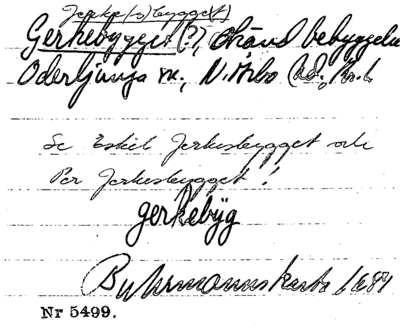 Jerke(s)bygget)
Gerkebygget (?), okänd bebyggelse
Oderljunga sn., N. Åsbo hd., Kr. l.
Se Eskil Jerkesbygget och
Per Jerkesbygget!
gerkebyg
Buhrmanns karta 1684
Nr 5499.